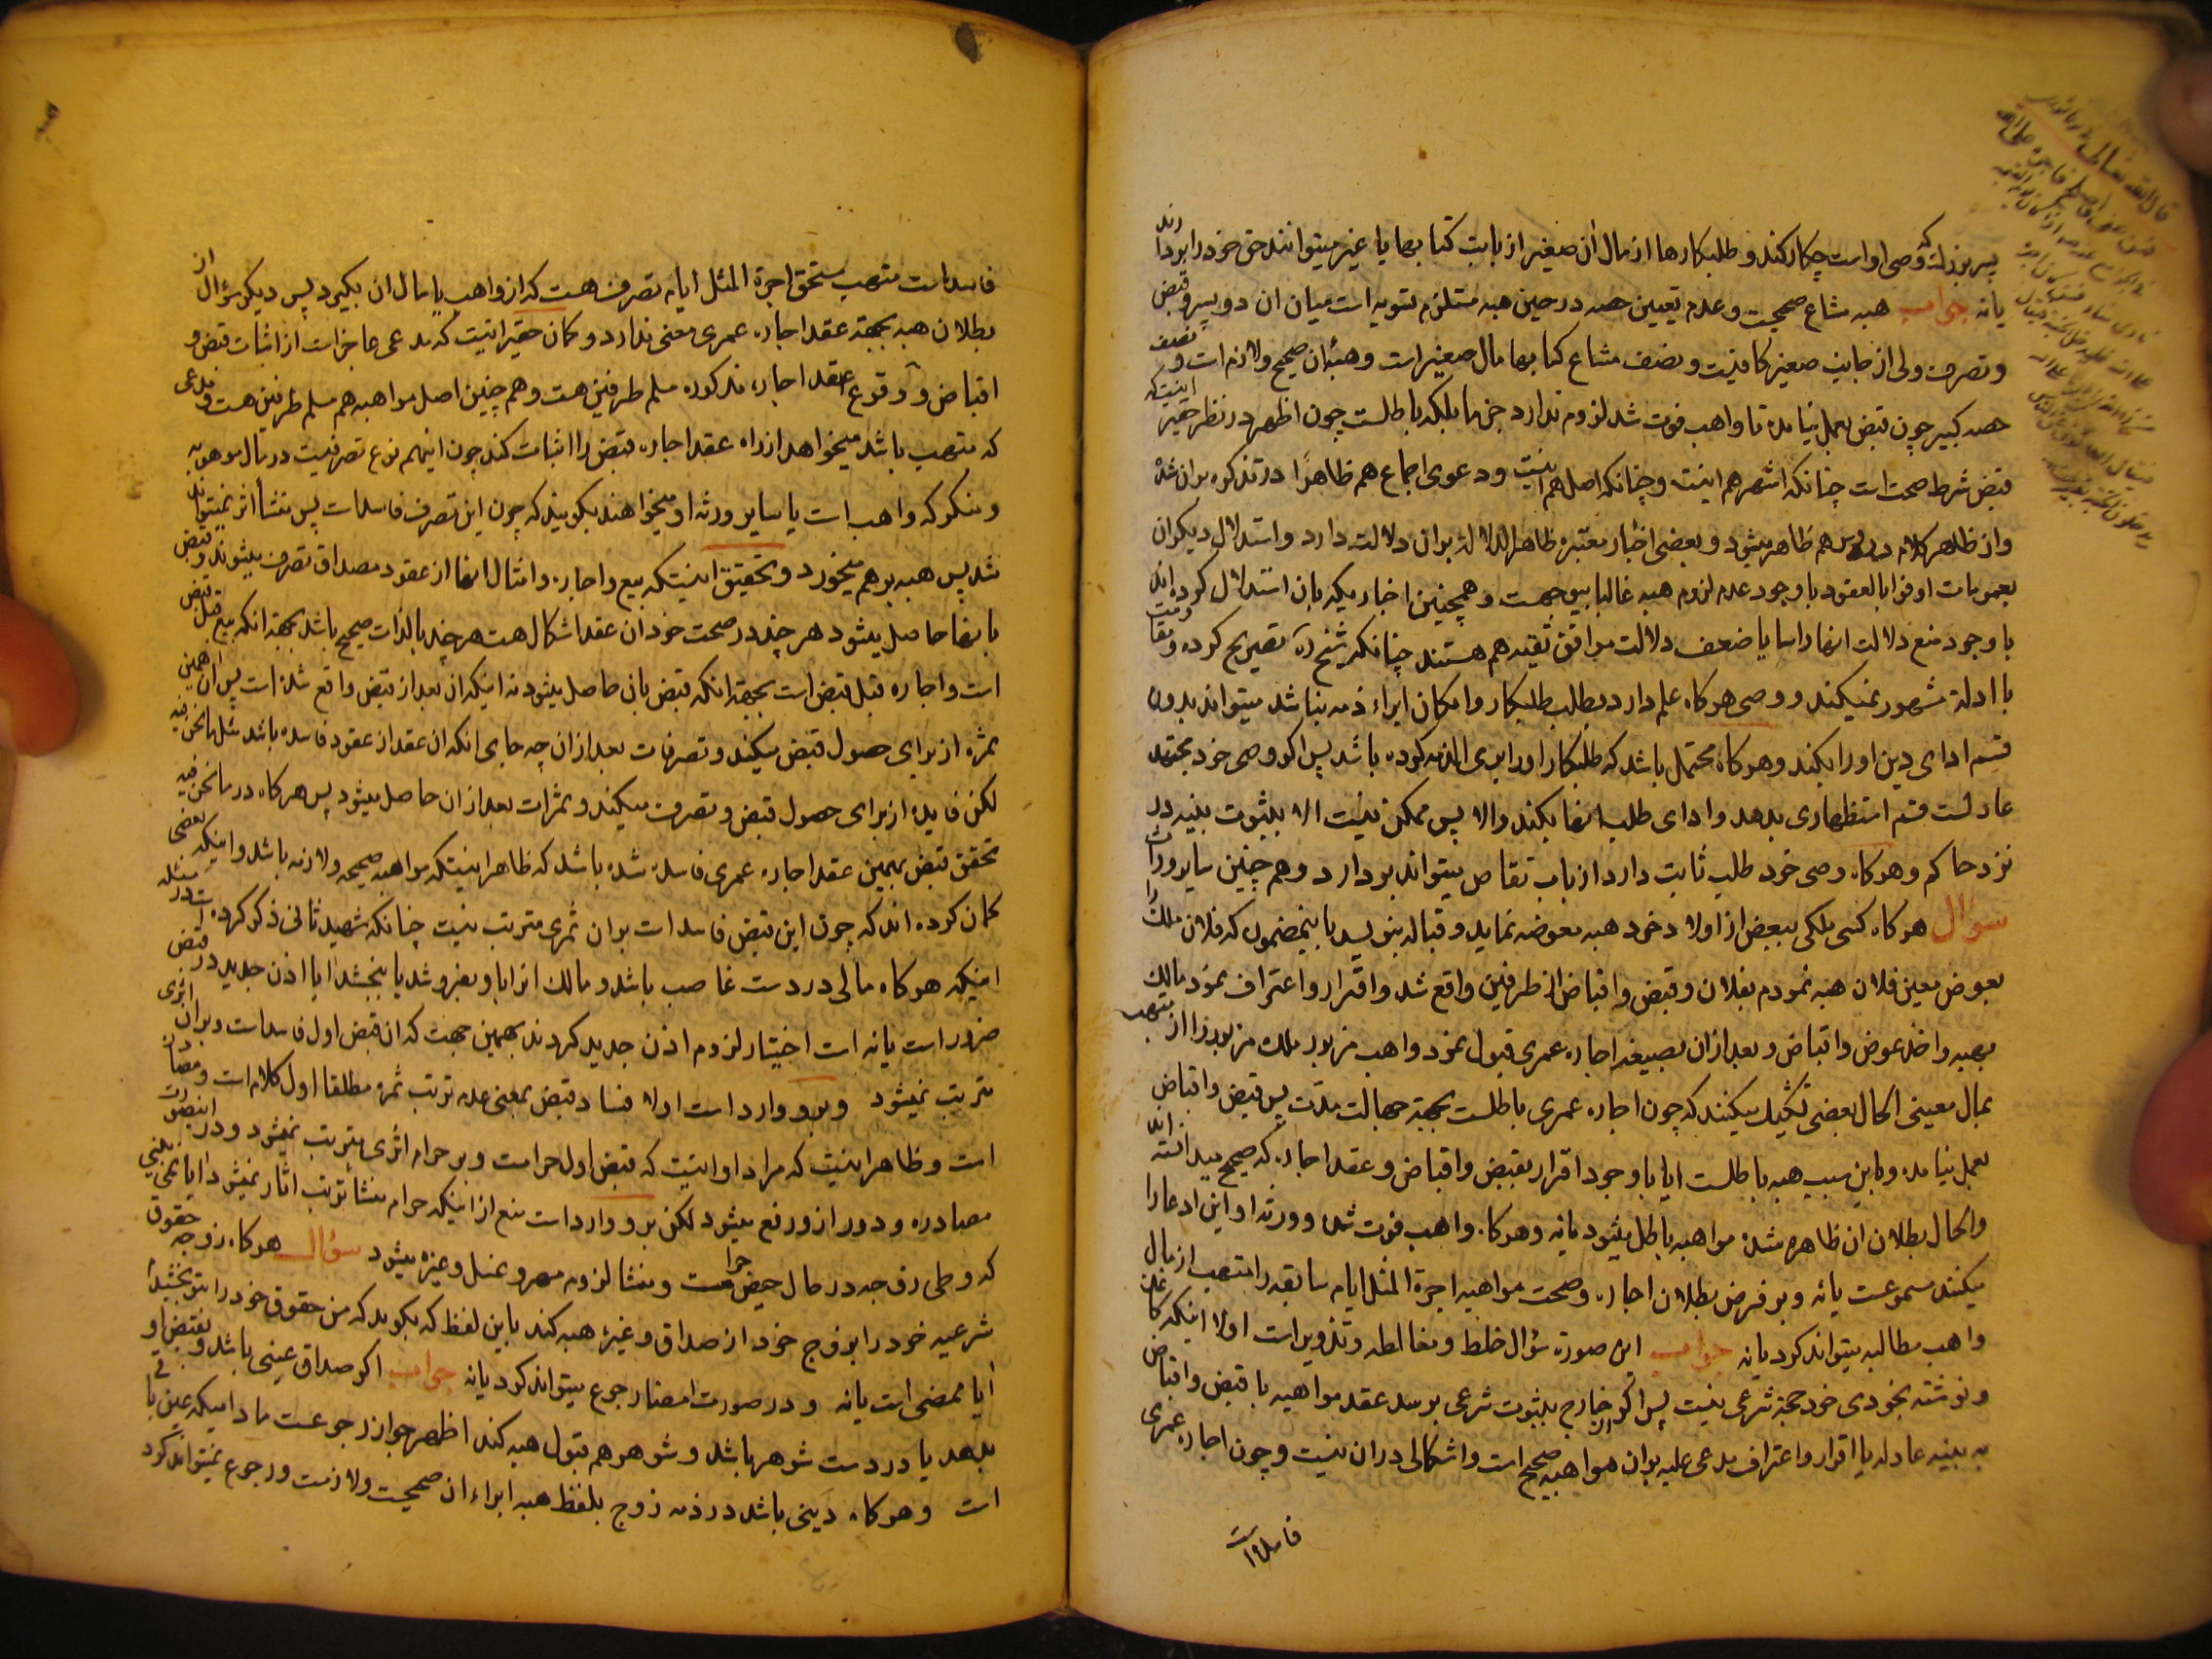 پسر بزرك كه وصی او است چكار كند و طلبكارها از مال آن صغیر از بابت كتابها یا غیر میتوانند حق خود را بردارند
یا نه جواب هبه مشاع صحیحست و عدم تعیین حصه در حین هبه مستلزم تسویه است میان ان دو پسر و قبض
و تصرف ولی از جانب صغیر كافیست و نصف مشاع كتابها مال صغیر است و هبه ان صحیح و لازم است و نصف
حصه كبیر چون قبض بعمل نیامده تا واهب فوت شد لزوم ندارد جزما بلكه باطلست چون اظهر در نظر حقیر اینستكه
قبض شرط صحت است چنانكه اشهر هم اینست و چنانكه اصل هم اینست و دعوی اجماع هم ظاهرا در تذكره بر ان شده
و از ظاهر كلام دروس هم ظاهر میشود و بعضی اخبار معتبره ظاهر الدلالة بر ان دلالت دارد و استدلال دیكران
بعمومات اوفوا بالعقود با وجود عدم لزوم هبه غالبا بیوجهست و همچنین اخباریكه بان استدلال كرده اند
با وجود منع دلالت انها راسا یا ضعف دلالت موافق تقیه هم هستند چنانكه شیخ ره تصریح كرده و مقاومت
با ادلة مشهور نمیكند و وصی هركاه علم دارد بطلب طلبكار و امكان ابراء ذمه نباشد میتواند بدون
قسم ادای دین او را بكند و هركاه محتمل باشد كه طلبكار او را بری الذمه كرده باشد پس اكر وصی خود مجتهد
عادلست قسم استظهاری بدهد و ادای طلب انها بكند والا پس ممكن نیست الا بثبوت بینه در
نزد حاكم و هركاه وصی خود طلب ثابت دارد از باب تقاص میتواند بردارد و هم چنین سایر وراث
سؤال هركاه كسی ملكی ببعض از اولاد خود هبه معوضه نماید و قباله بنویسد باینمضمون كه فلان ملك را
بعوض معین فلان هبه نمودم بفلان و قبض و اقباض از طرفین واقع شد و اقرار و اعتراف نمود مالك
بهبه و اخذ عوض و اقباض و بعد از ان بصیغه اجاره عمری قبول نمود واهب مزبور ملك مزبور را از متهب
بمال معینی الحال بعضی تشكیك میكنند كه چون اجاره عمری باطلست بجهة جهالت مدت پس قبض و اقباض
بعمل نیامده و باین سبب هبه باطلست ایا با وجود اقرار بقبض و اقباض و عقد اجاره كه صحیح میدانسته اند
و الحال بطلان ان ظاهر شده مواهبه باطل میشود یا نه و هركاه واهب فوت شد و ورثه او این ادعا را
میكنند مسموعست یا نه و بر فرض بطلان اجاره و صحت مواهبه اجرة المثل ایام سابقه را متهب از مال
واهب مطالبه میتواند كرد یا نه جواب این صورة سؤال خلط و مغالطه و تذویر است اولا اینكه كاغذ
و نوشته بخودی خود حجة شرعی نیست پس اكر از خارج بثبوت شرعی برسد عقد مواهبه با قبض و اقباض
به بینه عادله یا اقرار و اعتراف مدعی علیه بر ان مواهبه صحیح است و اشكالی در ان نیست و چون اجاره عمری
فاسد است
فاسد است متهب مستحق اجرة المثل ایام تصرف هست كه از واهب یا مال ان بكیرد پس دیكر سؤال از
بطلان هبه بجهة عقد اجاره عمری معنی ندارد و كمان حقیر اینست كه مدعی عاجز است از اثبات قبض و
اقباض و وقوع عقد اجاره مذكوره مسلم طرفین هست و هم چنین اصل مواهبه هم مسلم طرفین هست و مدعی
كه متهب باشد میخواهد از راه عقد اجاره قبض را اثبات كند چون اینهم نوع تصرفیست در مال موهوبه
و منكر كه واهب است یا سایر ورثه او میخواهند بكویند كه چون این تصرف فاسد است پس منشأ اثر نمیتواند
شد پس هبه بر هم میخورد و تحقیق اینستكه بیع و اجاره و امثال انها از عقود مصداق تصرف میشوند و قبض
بانها حاصل میشود هر چند در صحت خود ان عقد اشكال هست هر چند بالذات صحیح باشد بجهة انكه بیع قبل قبض
است و اجاره قبل قبض است بجهة انكه قبض بان حاصل میشود نه اینكه ان بعد از قبض واقع شده است پس ان همین
ثمره از برای حصول قبض میكند و تصرفات بعد از ان چه جای انكه ان عقد از عقود فاسده باشد مثل ما نحن فیه
لكن فایده از برای حصول قبض و تصرف میكند و ثمرات بعد از ان حاصل میشود پس هركاه در ما نحن فیه
تحقق قبض بهمین عقد اجاره عمری فاسده شده باشد كه ظاهر اینستكه مواهبه صحیحه و لازمه باشد و اینكه بعضی
كمان كرده اند كه چون این قبض فاسد است بر ان ثمری مترتب نیست چنانكه شهید ثانی ذكر كرده است در مسئله
اینكه هركاه مالی در دست غاصب باشد و مالك انرا باو بفروشد یا ببخشد ایا اذن جدید در قبض
ضرور است یا نه است اختیار لزوم اذن جدید كردند بهمین جهت كه ان قبض اول فاسد است و بر ان اثری
مترتب نمیشود و برو وارد است اولا فساد قبض بمعنی عدم ترتب ثمره مطلقا اول كلام است و مصادره
است و ظاهر اینست كه مراد او اینست كه قبض اول حرامست و بر حرام اثری مترتب نمیشود و در اینصورت
مصادره و دور از و رفع میشود لكن برو وارد است منع از اینكه حرام منشأ ترتب اثار نمیشود ایا نمی بینی
كه وطی زوجه در حال حیض حرامست و منشا لزوم مهر و غسل و غیره میشود سؤال هركاه زوجه حقوق
شرعیه خود را بزوج خود از صداق و غیره هبه كند باین لفظ كه بكوید كه من حقوق خود را بتو بخشیدم
ایا ممضی است یا نه و در صورت امضا رجوع میتواند كرد یا نه جواب اكر صداق عینی باشد و بقبض او
بدهد یا در دست شوهر باشد و شوهر هم قبول هبه كند اظهر جواز رجوعست مادامیكه عین باقی
است و هركاه دینی باشد در ذمه زوج بلفظ هبه ابراء ان صحیحست و لازمست و رجوع نمیتواند كرد